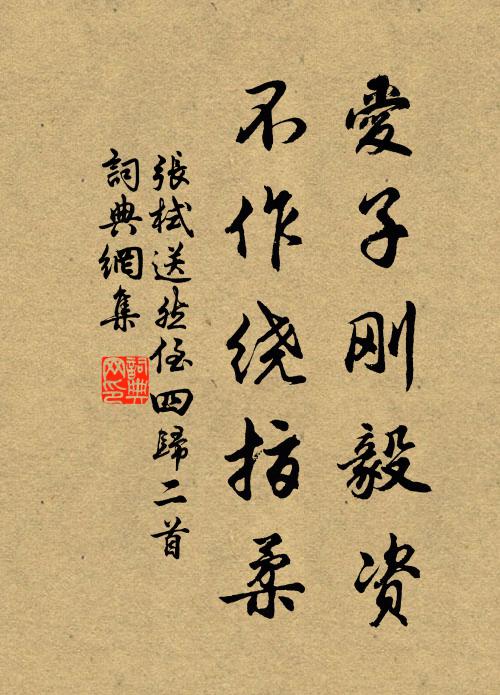 愛子刚毅资
不作绕指柔
張栻送然侄四歸二首
詞典網集
詞典网印